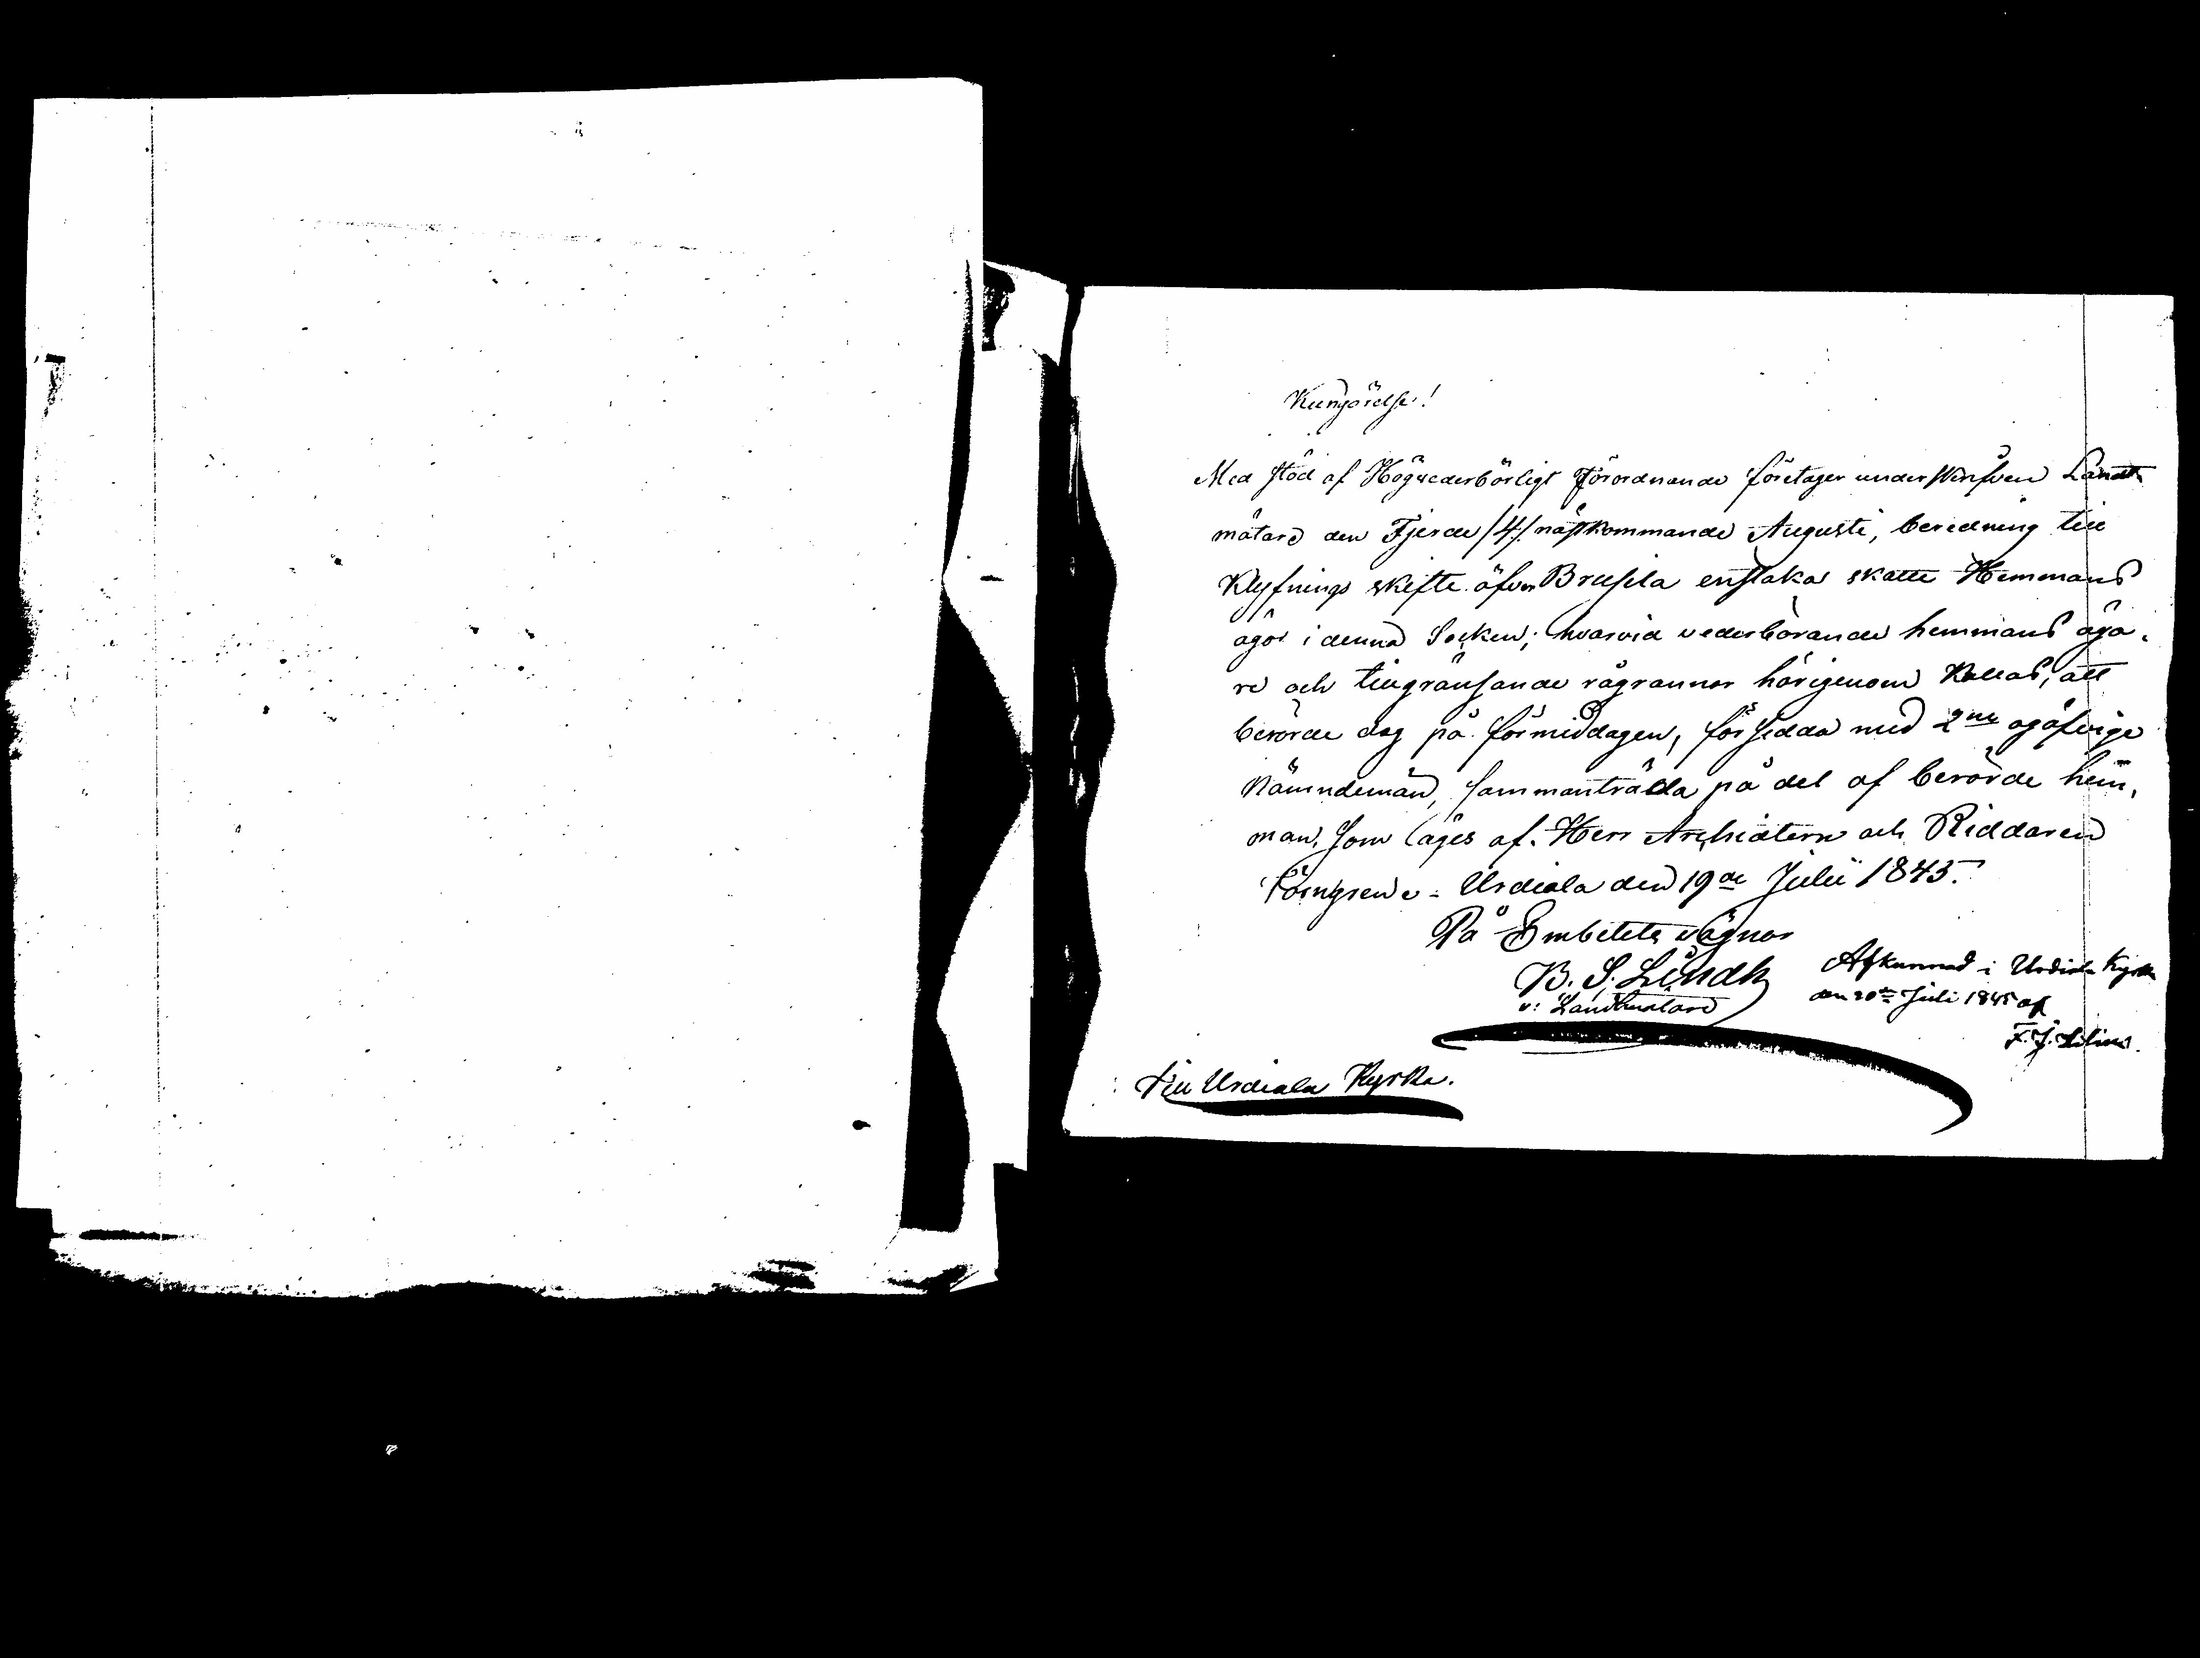 Kungörelse!
Med stöd af Högvederbörligt Förordnande företager underskrifven Landt
mätare den Fjerde /4/ nästkommande Augusti, beredning till
Klyfnings skifte öfver Brusila enstaka skatte Hemmans
ägor i denna Socken; hvarvid vederbörande hemmans äga-
re och tillgränsande rågrannar härigenom kallas, att
berörde dag på förmiddagen, försedda med 2ne ojäfvige
Nämndemän, sammanträda på det af berörde hem-
man, som äges af Herr Archiatern och Riddaren
Törngren. Urdiala den 19de Julii 1845.
På Embetets vägnar
B. S. Lindh
v: Landtmätare
Afkunnad i Urdiala Kyrka
den 20de Juli 1845 af
F. J.
Till Urdiala Kyrka.